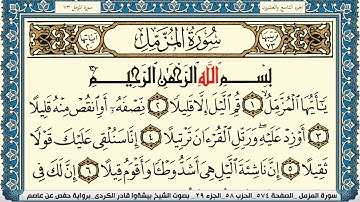 الجزء التاسع والعشرون
سورة المزمل ٧٣
سُورَةُ المُزَّمِّلِ
بِسْمِ اللَّهِ الرَّحْمَٰنِ الرَّحِيمِ
يَا أَيُّهَا الْمُزَّمِّلُ ١ قُمِ الَّيْلَ إِلَّا قَلِيلًا ٢ نِّصْفَهُ أَوِ انقُصْ مِنْهُ قَلِيلًا
٣ أَوْ زِدْ عَلَيْهِ وَرَتِّلِ الْقُرْءَانَ تَرْتِيلًا ٤ إِنَّا سَنُلْقِي عَلَيْكَ قَوْلًا
ثَقِيلًا ٥ إِنَّ نَاشِئَةَ الَّيْلِ هِيَ أَشَدُّ وَطْـًٔا وَأَقْوَمُ قِيلًا ٦ إِنَّ لَكَ فِي
سورة المزمل _ الصفحة ٥٧٤ _ الحزب ٥٨ _ الجزء ٢٩ _ بصوت الشيخ بيشةوا قادر الكردي _ برواية حفص عن عاصم